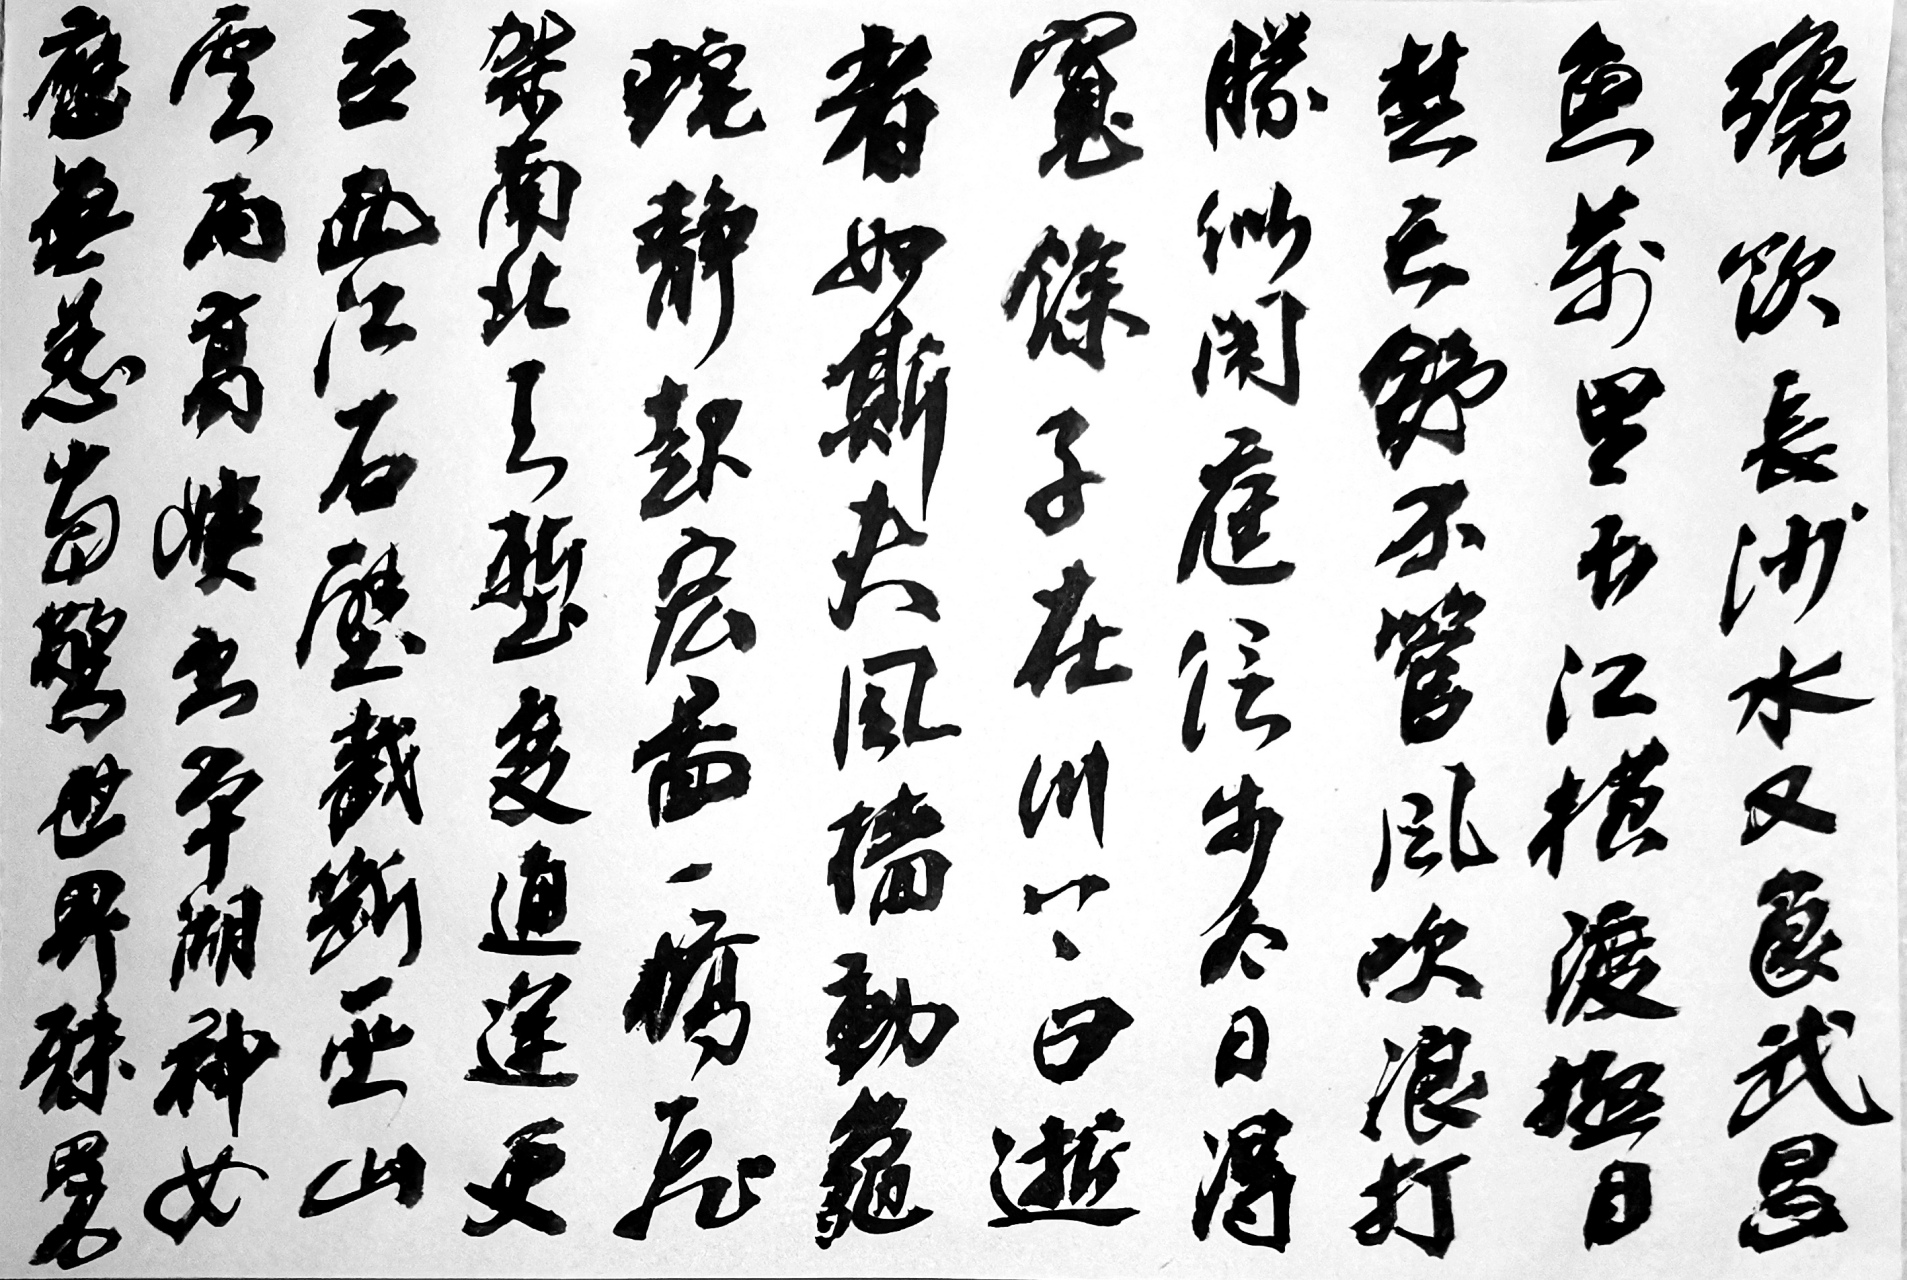 纔飲長沙水又食武昌
魚萬里長江橫渡極目
楚天舒不管風吹浪打
勝似閑庭信步今日得
寬餘子在川上曰逝
者如斯夫風檣動龜
蛇靜起宏圖一橋飛
架南北天塹變通途更
立西江石壁截斷巫山
雲雨高峽出平湖神女
應無恙當驚世界殊